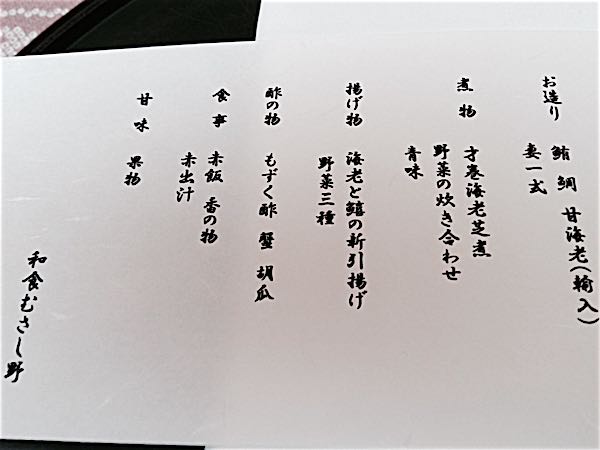 お造り
鮪 鯛 甘海老(輸入)
妻一式
煮物
才巻海老芝煮
野菜の炊き合わせ
青味
揚げ物
海老と鱚の新引揚げ
野菜三種
酢の物
もずく酢 蟹 胡瓜
食事
赤飯 香の物
赤出汁
甘味
果物
和食むさし野